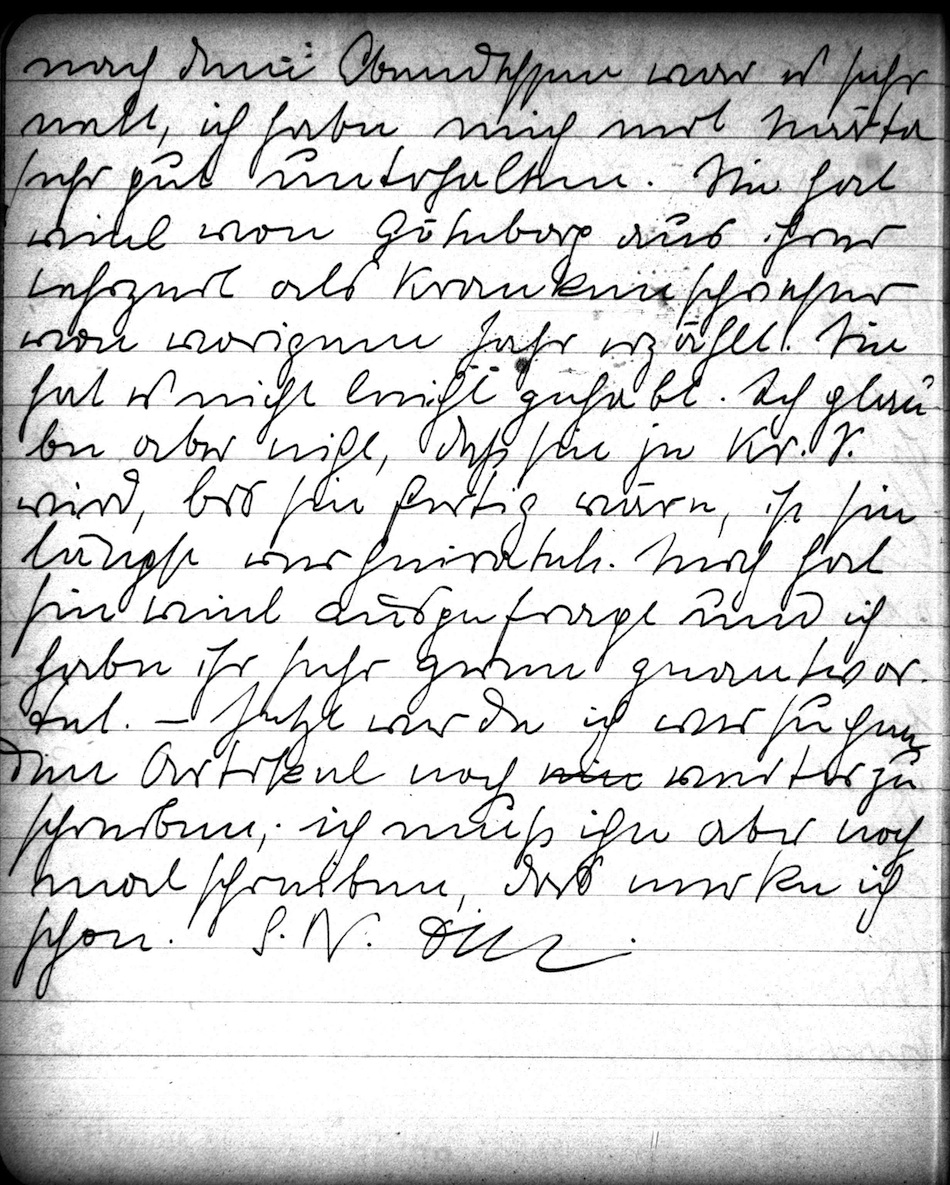 nach dem Abendessen war es sehr
nett, ich habe mich mit Märta
sehr gut unterhalten. Sie hat
viel von Göteborg aus ihrer
Lehrzeit als Krankenschwester
von vorigem Jahr erzählt. Sie
hat es nicht leicht gehabt. Ich glau
be aber nicht, dass sie je Kr. S.
wird, bis sie fertig wäre, ist sie
längst verheiratet. Mich hat
sie viel ausgefragt und ich
habe ihr sehr gerne geantwor-
tet. – Jetzt werde ich versuchen
den Artikel noch weiterzu
schreiben, ich muss ihn aber noch
mal schreiben, das merke ich
schon. G. N.